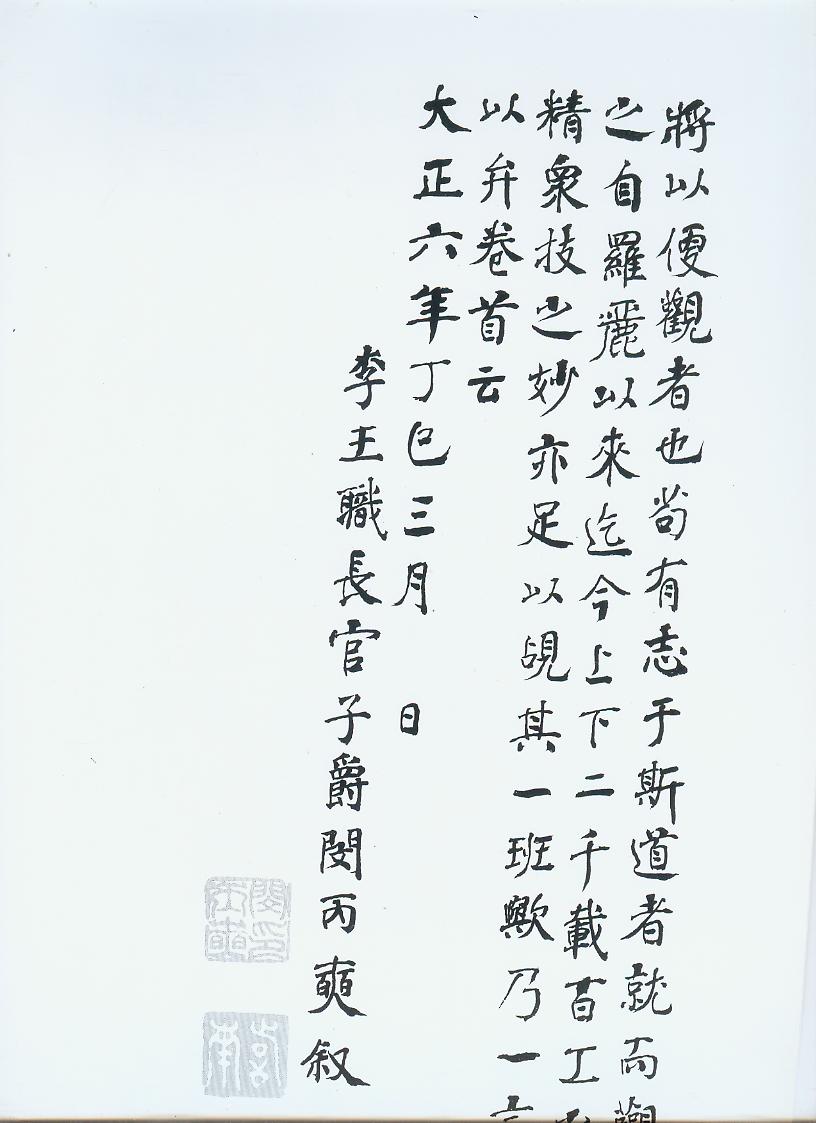 將以便觀者也苟有志于斯道者就而觀
之自羅麗以來迄今上下二千載百工
精衆技之妙亦足以覘其一班歟乃一言
以弁卷首云
大正六年丁巳三月 日
李王職長官子爵閔丙奭叙